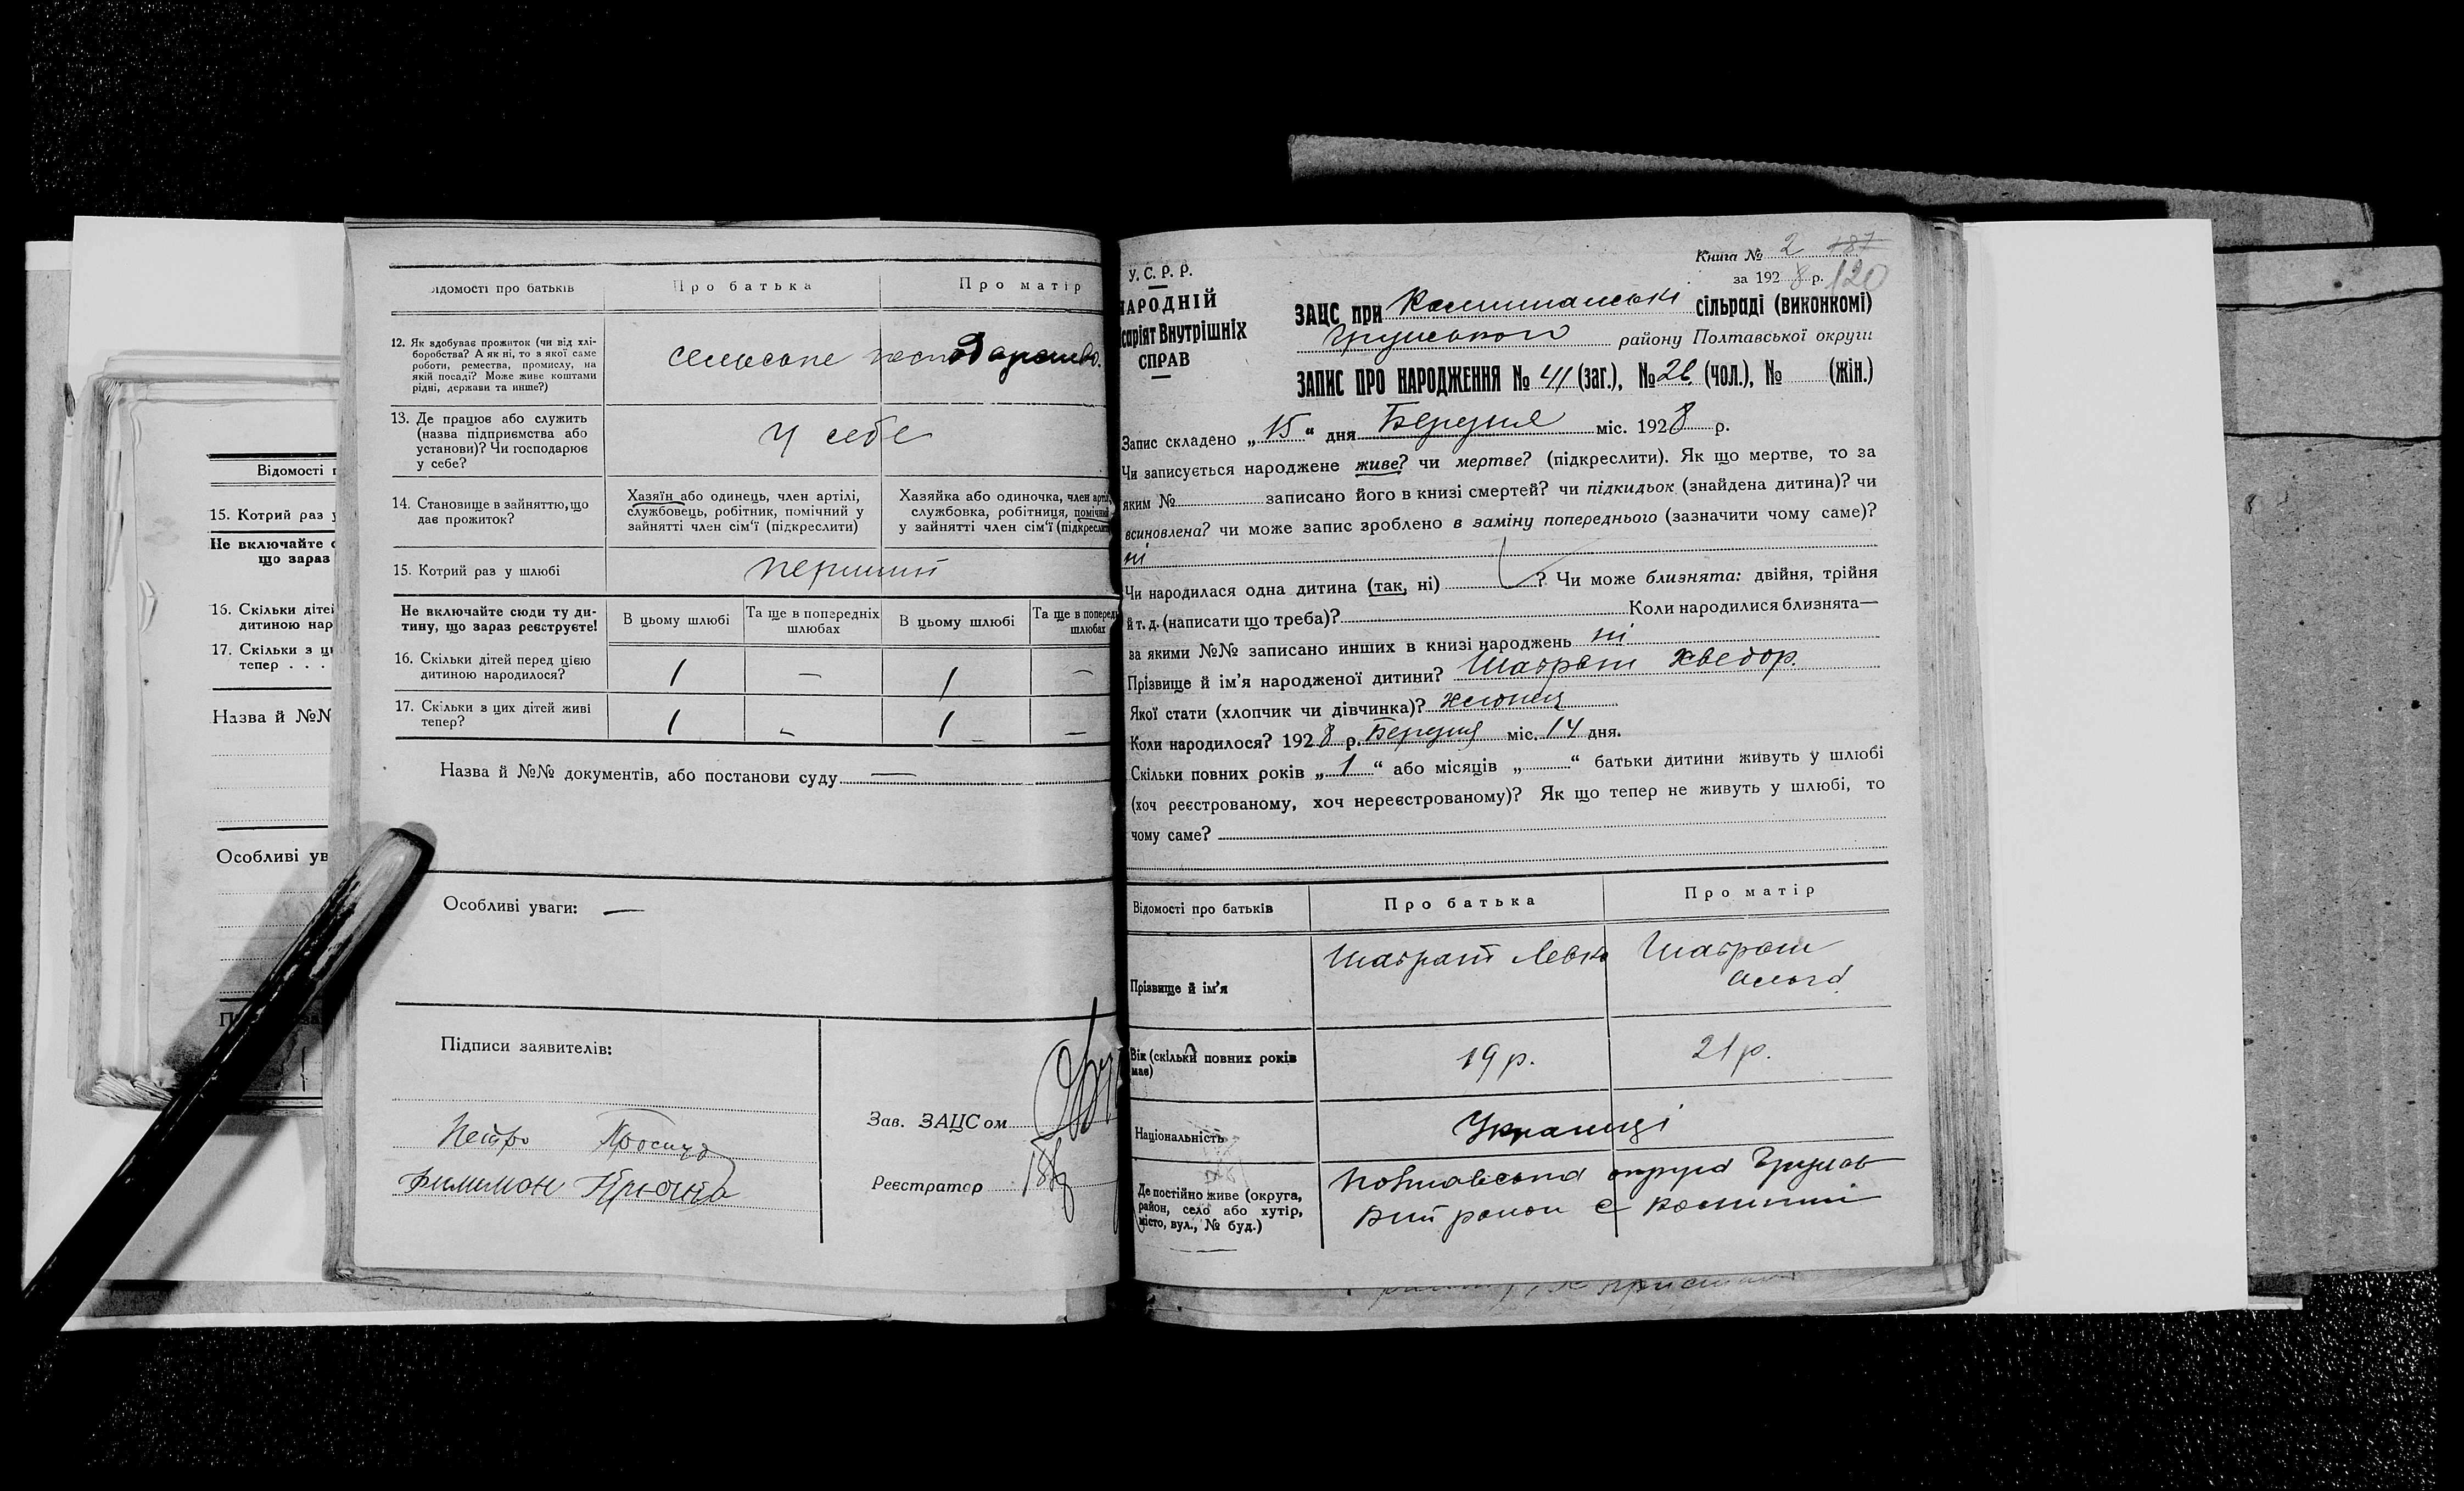 Відомості п
15. Котрий раз у
Не включайте с
що зараз
16. Скільки діте
дитиною нар
17. Скільки з ц
тепер . . .
Назва й №N
Особливі ув
ідомості про батьків
Про батька
Про матір
12. Як здобуває прожиток (чи від хлі-
боробства? А як ні, то з якої саме
роботи, ремества, промислу, на
якій посаді? Може живе коштами
рідні, держави та инше?)
сельське господарство.
13. Де працює або служить
(назва підприємства або
установи)? Чи господарює
у себе?
У себе
14. Становище в зайняттю, що
дає прожиток?
Хазяїн або одинець, член артілі,
службовець, робітник, помічний у
зайнятті член сім'ї (підкреслити)
Хазяйка або одиночка, член арті
службовка, робітниця, помічни
у зайнятті член сім'ї (підкресли
15. Котрий раз у шлюбі
перший
Не включайте сюди ту ди-
тину, що зараз реєструєте!
В цьому шлюбі
Та ще в попередніх
шлюбах
В цьому шлюбі
Та ще в поперед
шлюбах
16. Скільки дітей перед цією
дитиною народилося?
1 — 1 —
17. Скільки з цих дітей живі
тепер?
1 — 1 —
Назва й №№ документів, або постанови суду —
Особливі уваги: —
Підписи заявителів:
Петро
Филимон
Зав. ЗАЦСом
Реєстратор
Книга № 2 187
за 1928 р. 120
У.С.Р.Р.
НАРОДНІЙ
саріят Внутрішніх
СПРАВ
ЗАЦС при сільраді (виконкомі)
району Полтавської округи
ЗАПИС ПРО НАРОДЖЕННЯ № 41 (заг.), № 26 (чол.), № (жін.)
Запис складено „15“ дня Березня міс. 1928 р.
Чи записується народжене живе? чи мертве? (підкреслити). Як що мертве, то за
яким № записано його в книзі смертей? чи підкидьок (знайдена дитина)? чи
всиновлена? чи може запис зроблено в заміну попереднього (зазначити чому саме)?
ні
Чи народилася одна дитина (так, ні) ? Чи може близнята: двійня, трійня
й т. д. (написати що треба)? Коли народилися близнята—
за якими №№ записано инших в книзі народжень ні
Прізвище й ім'я народженої дитини? Шаграт Хведор.
Якої стати (хлопчик чи дівчинка)? хлопец
Коли народилося? 1928 р. Березня міс. 14 дня.
Скільки повних років „1“ або місяців „ “ батьки дитини живуть у шлюбі
(хоч реєстрованому, хоч нереєстрованому)? Як що тепер не живуть у шлюбі, то
чому саме?
Відомості про батьків
Про батька
Про матір
Прізвище й ім'я
Шаграт Левко
Шаграт
Вік (скільки повних років
має)
19 р.
21 р.
Національність
Українці
Де постійно живе (округа,
район, село або хутір,
місто, вул., № буд.)
Полтавська округа
район с